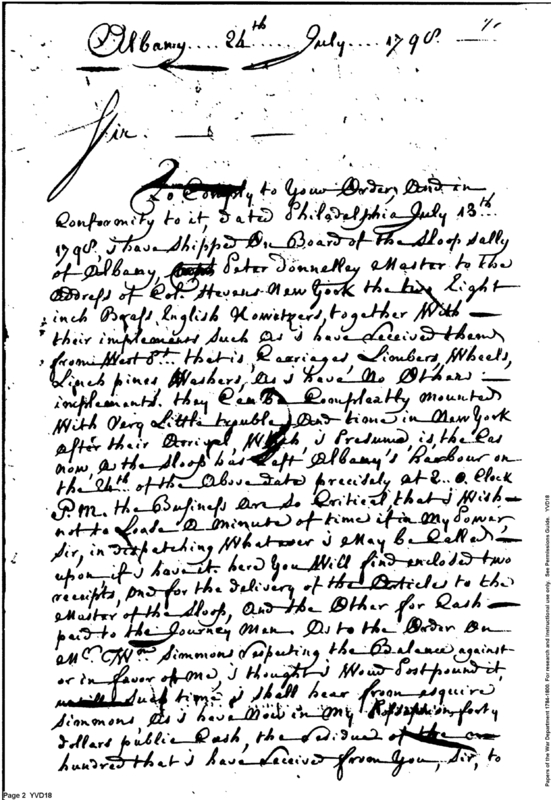 Albany.... 24th July.... 1798.
Sir.
To Comply to Your Order, And in
Conformity to it, dated Philadelphia July 13th
1798, i have Shipped On Board of the Sloop Sally
of Albany, Peter Donnelley Master to the
Address of Col: Stevens New York the two Eight
inch Brass English Howitzers, together With
their implements Such As i have Received them
from West Pt.. that is, Carriages Limbers, Wheels,
Linch pines Washers, As i have No Others
implements. they Can Be Compleatly mounted
With Very Little trouble And time in New York
after their Arrival, Which i Presume is the Cas
now, As the Sloop has Left Albany's harbour on
the 24th of the Above date precisely at 2.. O. Clock
P.M. the Business Are So Critical that i Wish
not to Loose A minute of time if in My Power
Sir, in dispatching Whatever i May be Called
upon if i have it. here You Will find enclosed two
receipts, One for the delivery of the Articles to the
Master of the Sloop, And the Other for Cash
paid to the Journey Man As to the Order On
Mr. Wm Simmons respecting the Balance against
or in favor of me, i thought i Woud Postpound it,
Such time i shall hear from esquire
Simmons, As i have Now in My forty
dollars public Cash, the residue of the
hundred that i have Received from You, Sir, to
Page 2 YVD18
Papers of the War Department 1784-1800. For research and instructional use only. See Permissions Guide. YVD18